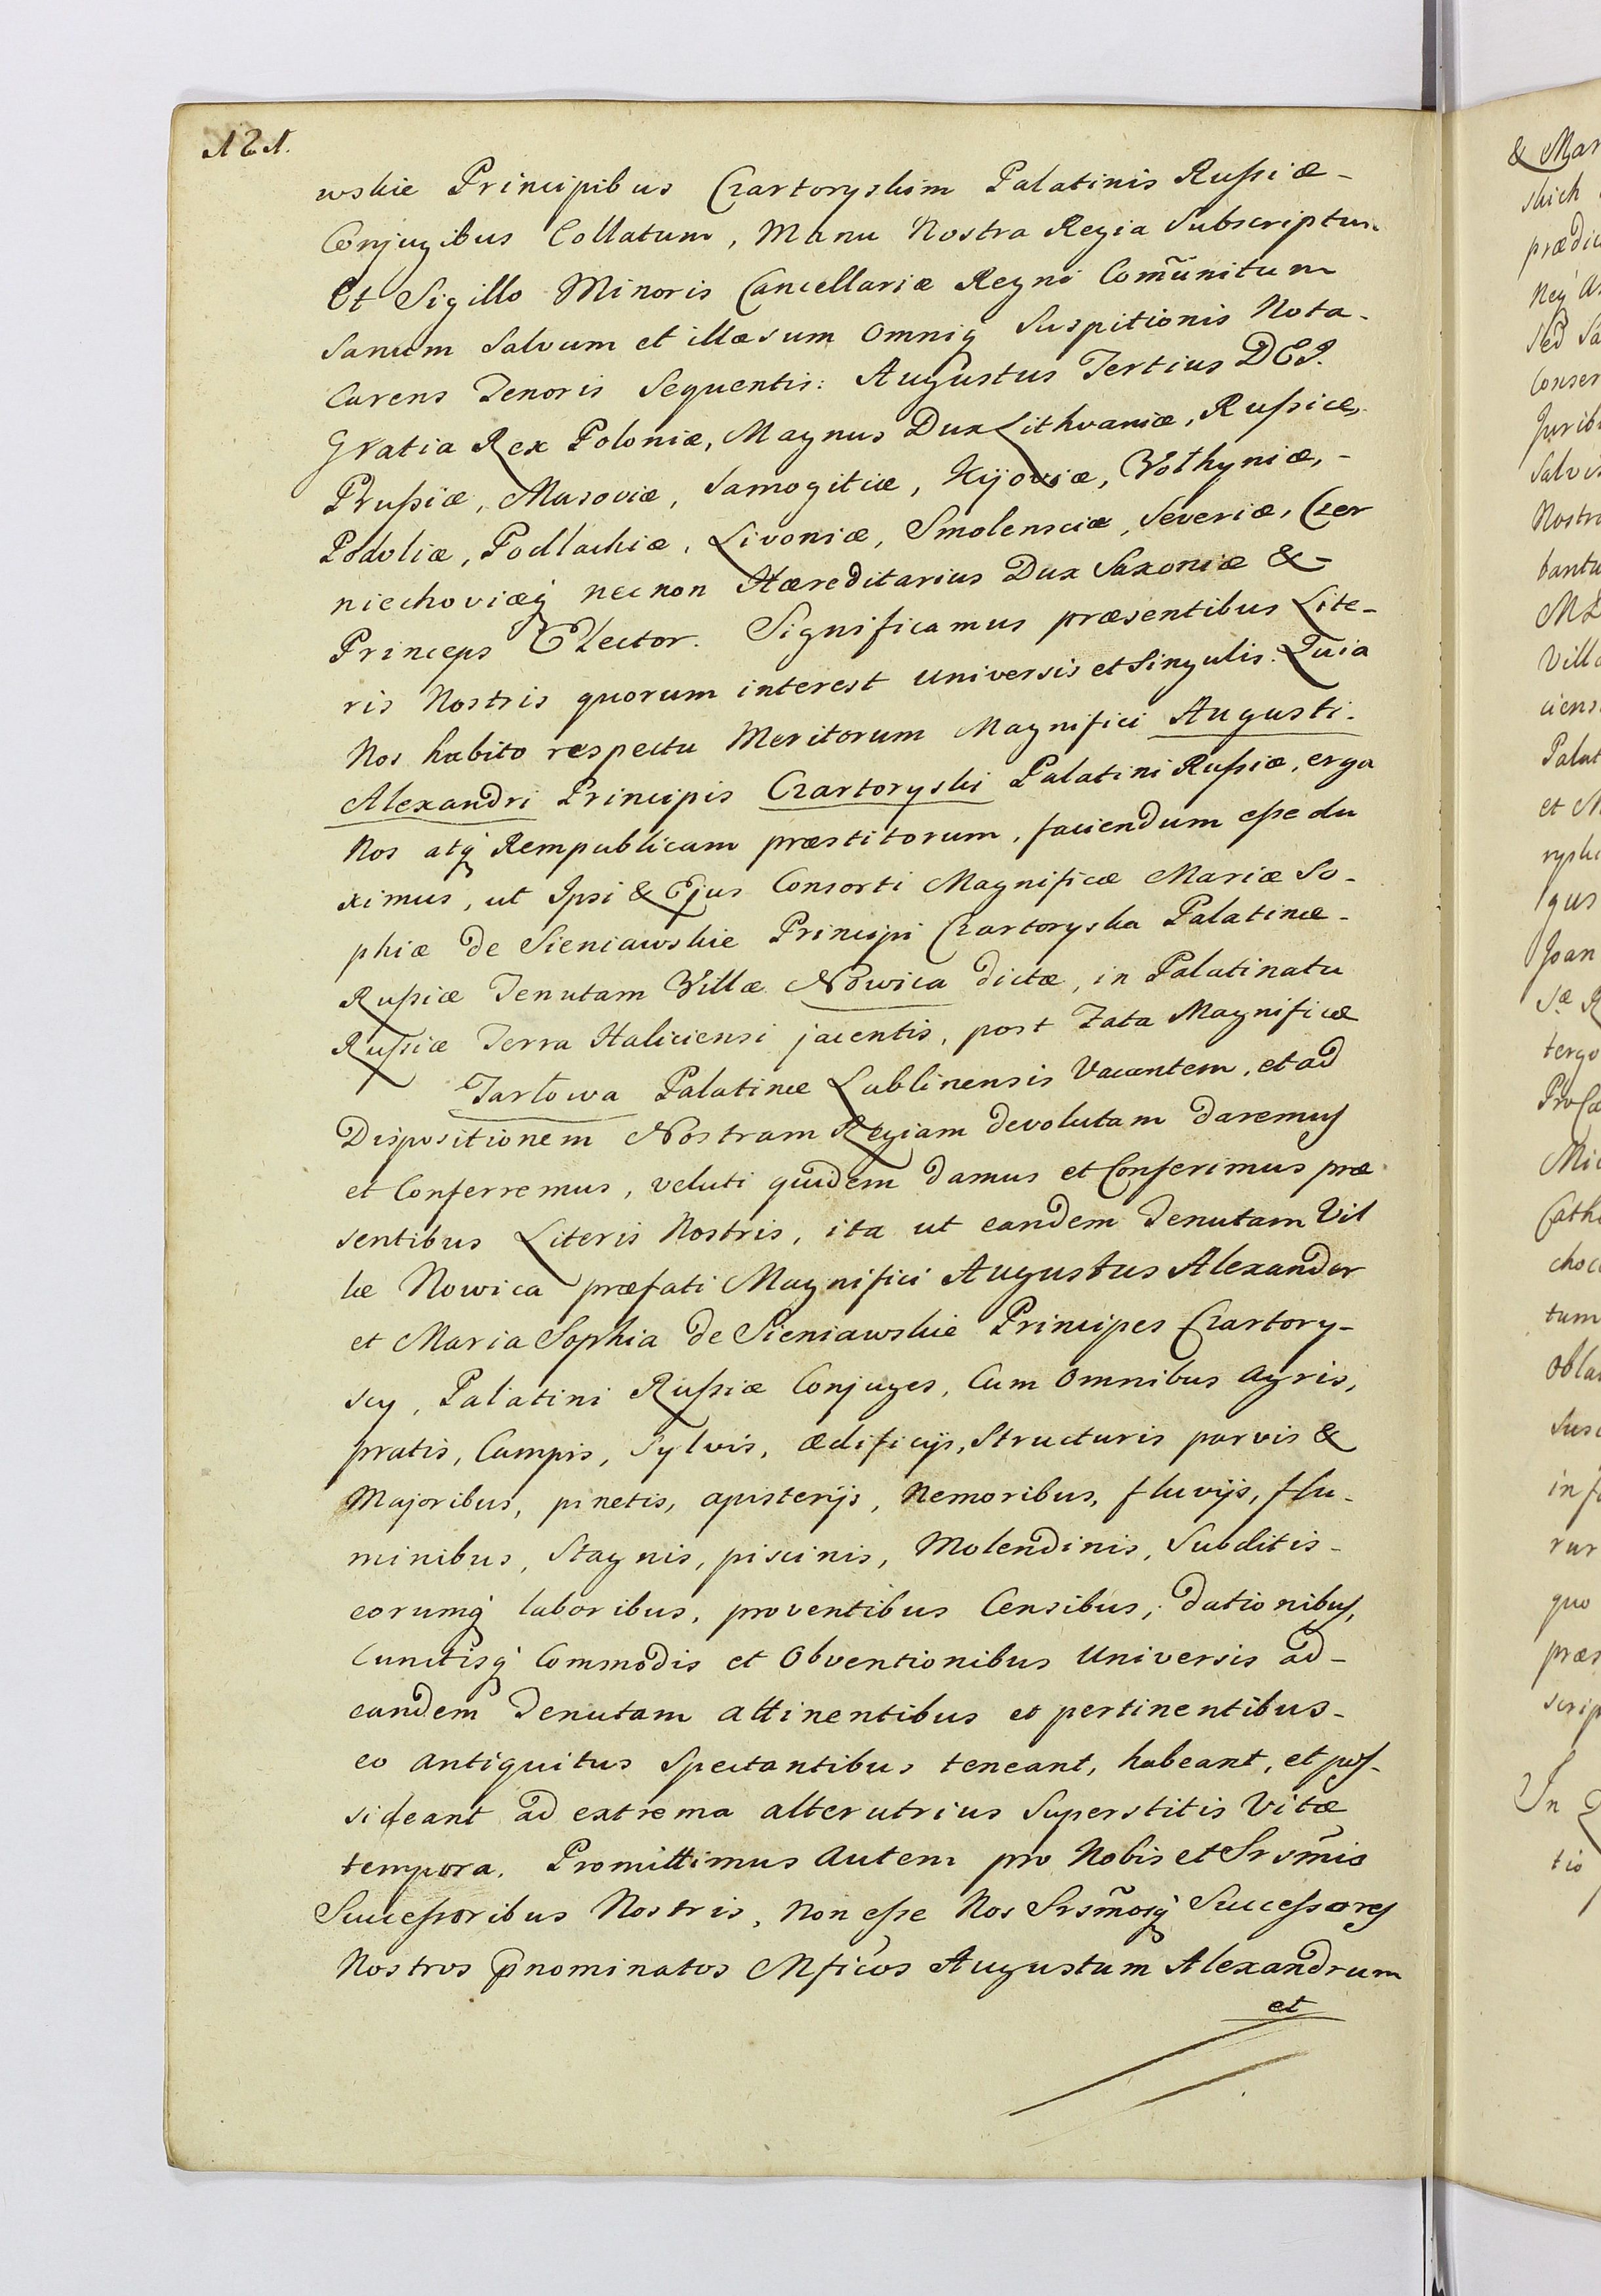 121.
wskie Principibus Czartoryskim Palatinis Russiæ-
Conjugibus Collatum, Manu Nostra Regia Subscriptum
Et Sigillo Minoris Cancellariæ Regni Com̃unitum
Sanum Salvum et illæsum omniq́ Suspitionis Nota-
Carens Tenoris Sequentis: Augustus Tertius DEI.
Gratia Rex Poloniæ, Magnus Dux Lithvaniæ, Russiæ,
Prussiæ, Masoviæ, Samogitiæ, Kijoviæ, Volhyniæ,-
Podoliæ, Podlachiæ, Livoniæ, Smolensciæ, Severiæ, Czer
niechoviæq́ necnon Hæreditarius Dux Saxoniæ &-
Princeps Elector. Significamus præsentibus Lite-
ris Nostris quorum interest universis et Singulis. Quia
Nos habito respectu Meritorum Magnifici Augusti-
Alexandri Principis Czartoryski Palatini Russiæ, erga
Nos atq́ Rempublicam præstitorum, faciendum esse du
ximus, ut Ipsi & Ejus Consorti Magnificæ Mariæ So-
phiæ de Sieniawskie Principi Czartoryska Palatinæ-
Russiæ Tenutam Villæ Nowica dictæ, in Palatinatu
Russiæ Terra Haliciensi jacentis, post Fata Magnificæ
Tarłowa Palatinæ Lublinensis Vacantem, et ad
Dispositionem Nostram Regiam devolutam daremus
et Conferremus, veluti quidem damus et Conferimus præ
sentibus Literis Nostris, ita ut eandem Tenutam Vil
læ Nowica præfati Magnifici Augustus Alexander
et Maria Sophia de Sieniawskie Principes Czartory-
scy, Palatini Russiæ Conjuges, Cum omnibus agris,
pratis, Campis, Sylvis, ædificijs, Structuris parvis &
Majoribus, pinetis, apisterijs, Nemoribus, fluvijs, flu-
minibus, Stagnis, piscinis, Molendinis, Subditis-
eorumq́ laboribus, proventibus Censibus, dationibus,
Cunctisq́ Commodis et Obventionibus Universis ad-
eandem Tenutam attinentibus et pertinentibus-
eo antiquitus Spectantibus teneant, habeant, et pos-
sideant ad extrema alterutrius Superstitis Vitæ
tempora. Promittimus Autem pro Nobis et Srsm̃is
Successoribus Nostris, Non esse Nos Srsm̃osq́ Successores
Nostros p̄nominatos Mficos Augustum Alexandrum
et
& Mar
skich
prædic
Neq́
Sed Sa
Conser
Juribu
Salvis
Nostr
bantu
Villa
ciens
Palat
et M
rysk
Joan
tergo
Mic
Cath
choc
tum
Obla
Susc
in f
rur
quo
præs
scrip
In
tio